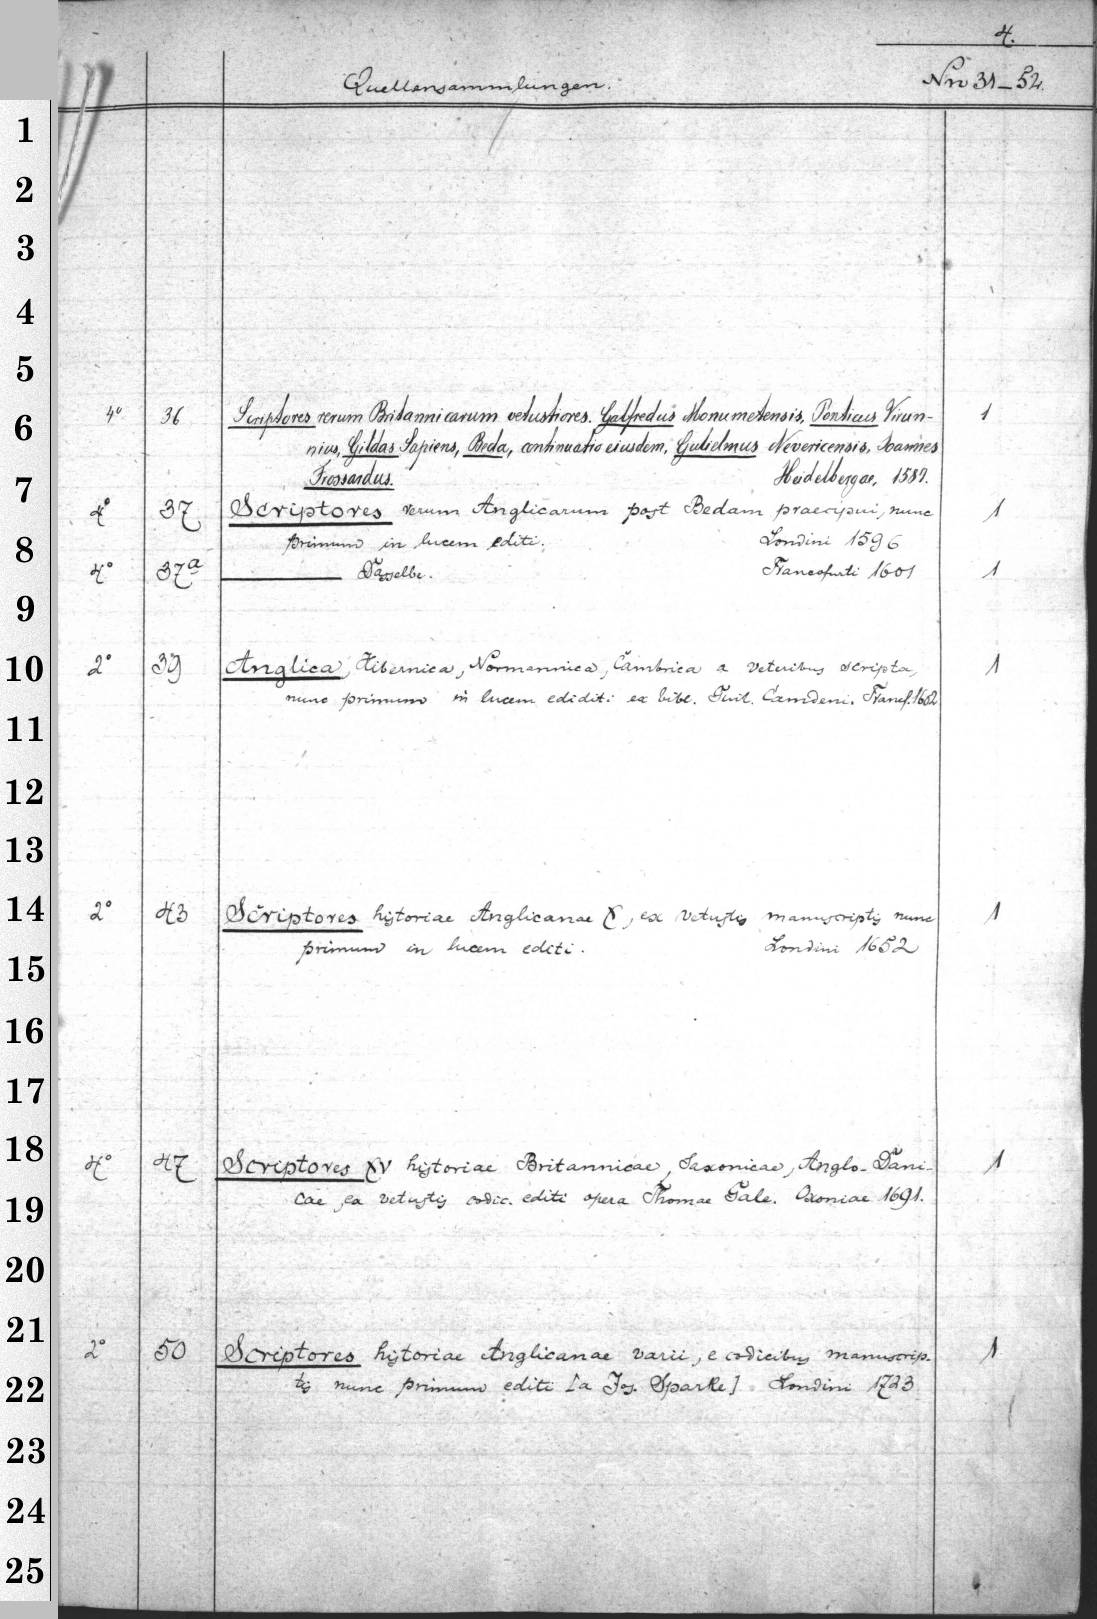 4.
Quellensammlungen. Nro 31-52.
1
2
3
4
5
6
7
8
9
10
11
12
13
14
15
16
17
18
19
20
21
22
23
24
25
4° 36 Scriptores rerum Britannicarum vetustiores. Galfredus Monumetensis, Ponticus Virun- 1
nius, Gildas Sapiens, Beda, continuatio eiusdem, Gulielmus Nevericensis, Joannes
Frossardus. Heidelbergae, 1587.
4° 37 Scriptores rerum Anglicarum post Bedam praecipui, nunc 1
primum in lucem editi. Londini 1596
4° 37a Dasselbe. Francofurti 1601 1
2° 39 Anglica, Hibernica, Normannica, Cambrica a veteribus scripta, 1
nunc primum in lucem editi ex bibl. Guil. Camdeni. Francf. 1602
2° 43 Scriptores historiae Anglicanae X, ex vetustis manuscriptis nunc 1
primum in lucem editi. Londini 1652
4° 47 Scriptores XV historiae Britannicae, Saxonicae, Anglo-Dani- 1
cae, ex vetustis codic. editi opera Thomae Gale. Oxoniae 1691.
2° 50 Scriptores historiae Anglicanae varii, e codicibus manuscrip- 1
tis nunc primum editi [a Jos. Sparke] Londini 1723